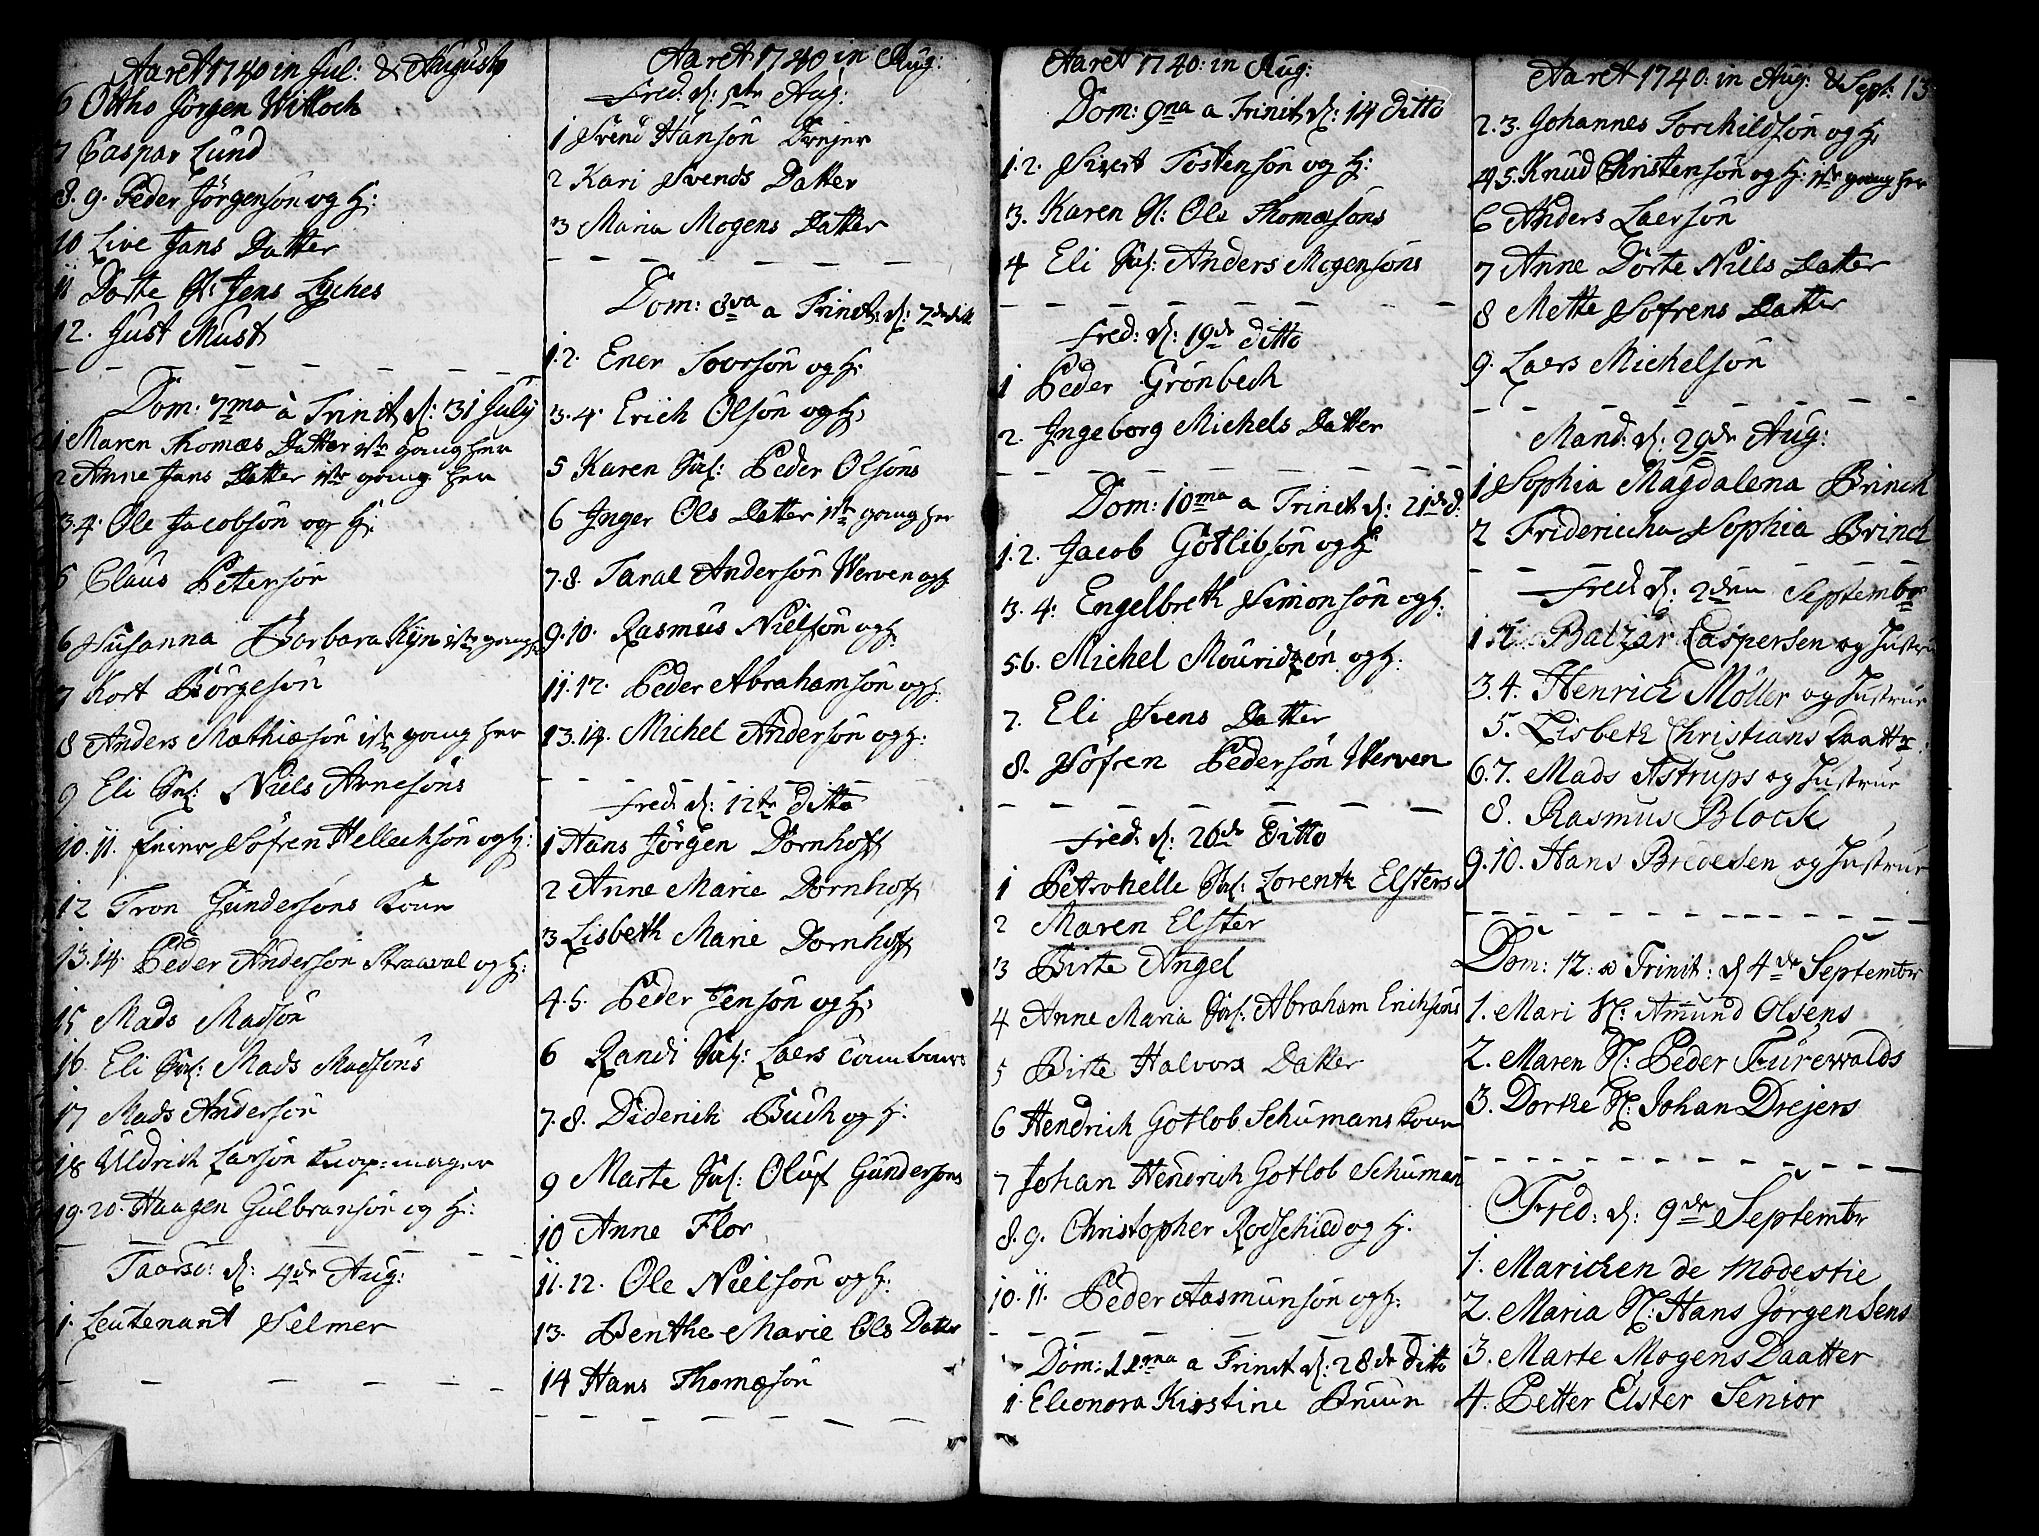 Aaret 1740 in Jul: & Augusto
6 Ottho Jörgen Willoch
7 Caspar Lund
8. 9. Peder Jörgensön og H:
10 Live Jans Datter
11 Dorte Jens Lyches
12. Just Must
Dom: 7ma à Trinit d: 31 July
1 Maren Thomæs Datter 1ste gang her
2 Anne Jans Datter 1ste gang her
3. 4. Ole Jacobsön og H:
5 Claus Petersön
6 Susanna Barbara Kyn 1ste gang
7 Kort Börgesön
8 Anders Mathiæsön 1ste gang her
9 Eli Sal: Niels Arnesöns
10. 11. Söfren Hellechsön og H:
12 Tron Gundersöns Kone
13. 14. Peder Andersön og H:
15 Mads Madsön
16. Eli Sal: Mads Madsöns
17 Mads Andersön
18 Uldrich Larsön
19. 20. Haagen Gulbransön og H:
Taarsd: d: 4de Aug:
1. Leutenant Selmer
Aaret 1740 in Aug:
Fred: d: 5te Aug:
1 Svend Hansön Drejer
2 Kari Svends Datter
3 Maria Mogens Datter
Dom: 8va a Trinit: d: 7de dito
1. 2. Ener Torsön og H:
3. 4. Erich Olsön og H:
5 Karen Sal: Peder Olsöns
6 Inger Ols Datter 1ste gang her
7. 8. Taral Andersön Werven og H:
9. 10. Rasmus Nielsön og H:
11. 12. Peder Abrahamsön og H:
13. 14. Michel Andersön og H:
Fred: d: 12te Ditto
1 Hans Jörgen Dornhoff
2 Anne Marie Dornhoff
3 Lisbeth Marie Dornhoff
4. 5. Peder Jensön og H:
6 Randi Sal: Laers Tambours
7. 8. Diderich Buch og H:
9 Marte Sal: Oluf Gundersöns
10 Anne Flor
11. 12. Ole Nielsön og H:
13. Benthe Marie Ols Datter
14 Hans Thomæsön
Aaret 1740: in Aug:
Dom: 9na a Trinit d: 14 Ditto
1. 2. Sivert Tostensön og H:
3. Karen Ole Thomæsöns
4 Eli Sal: Anders Mogensöns
Fred: d: 19de Ditto
1 Peder Grönbech
2. Ingeborg Michels Datter
Dom: 10ma a Trinit d: 21de d:
1. 2. Jacob Gotlibsön og H:
3. 4: Engelbreth Simonsön og H:
5. 6. Michel Mouridzön og H:
7. Eli Svens Datter
8. Söfren Pedersön Werven
Fred: d: 26de Ditto
1 Petronelle Sal: Lorentz Elsters
2 Maren Elster
3 Birte Angel
4 Anne Maria Sal: Abraham Erichsöns
5 Birte Halvors Datter
6 Hendrich Gotlob Schumans Kone
7 Johan Hendrich Gotlob Schuman
8. 9. Christopher Rodschied og H:
10. 11. Peder Aasmunsön og H:
Dom: 11ma a Trinit d: 28de Ditto
1. Eleonora Kirstine Bruun
Aaret 1740: in Aug: & Sept: 13
2. 3. Johannes Torchildsön og H:
4 5. Knud Christensön og H: 1ste gang her
6 Anders Laersön
7 Anne Dorte Nills Datter
8 Mette Sofrens Datter
9. Laers Michelsön
Mand: d: 29de Aug:
1 Sophia Magdalena Brinch
2 Fridericcha Sophia Brinch
Fred d: 2den Septembr
1 2. Balzar Caspersen og Hustru
3. 4. Henrich Möller og Hustrue
5. Lisbeth Christians Daatter
6. 7. Mads Astrups og Hustrue
8. Rasmus Block
9. 10. Hans Bredesen og Hustrue
Dom: 12: a Trinit: d 4de Septembr
1. Mari Amund Olsens
2. Maren Peder Furewalds
3. Dorthe Johan Drejers
Fred: d: 9de Septembr
1. Marichen de Modestie
2. Maria Hans Jörgensens
3. Marte Mogens Daatter
4. Petter Elster Senior